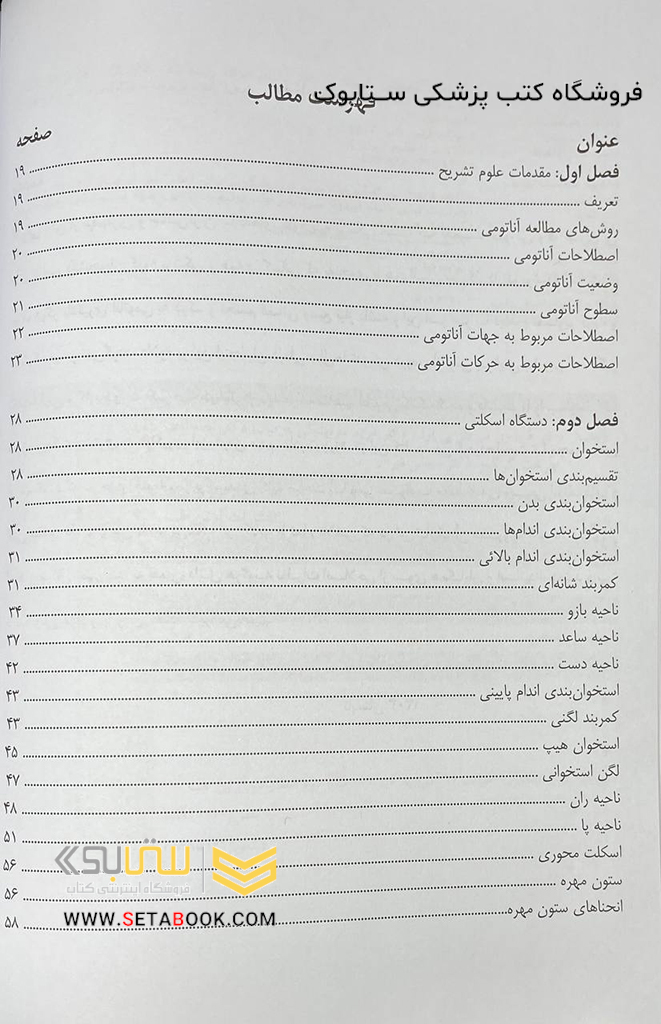 فروشگاه کتب پزشکی ستابوک
فهرست مطالب
عنوان صفحه
فصل اول: مقدمات علوم تشریح ۱۹
تعریف ۱۹
روش‌های مطالعه آناتومی ۱۹
اصطلاحات آناتومی ۲۰
وضعیت آناتومی ۲۰
سطوح آناتومی ۲۱
اصطلاحات مربوط به جهات آناتومی ۲۲
اصطلاحات مربوط به حرکات آناتومی ۲۳
فصل دوم: دستگاه اسکلتی ۲۸
استخوان ۲۸
تقسیم‌بندی استخوان‌ها ۲۸
استخوان‌بندی بدن ۳۰
استخوان‌بندی اندام‌ها ۳۰
استخوان‌بندی اندام بالائی ۳۱
کمربند شانه‌ای ۳۱
ناحیه بازو ۳۴
ناحیه ساعد ۳۷
ناحیه دست ۴۲
استخوان‌بندی اندام پایینی ۴۳
کمربند لگنی ۴۳
استخوان هیپ ۴۵
لگن استخوانی ۴۷
ناحیه ران ۴۸
ناحیه پا ۵۱
اسکلت محوری ۵۶
ستون مهره ۵۶
انحناهای ستون مهره ۵۸
ستابوک
فروشگاه اینترنتی کتاب
WWW.SETABOOK.COM